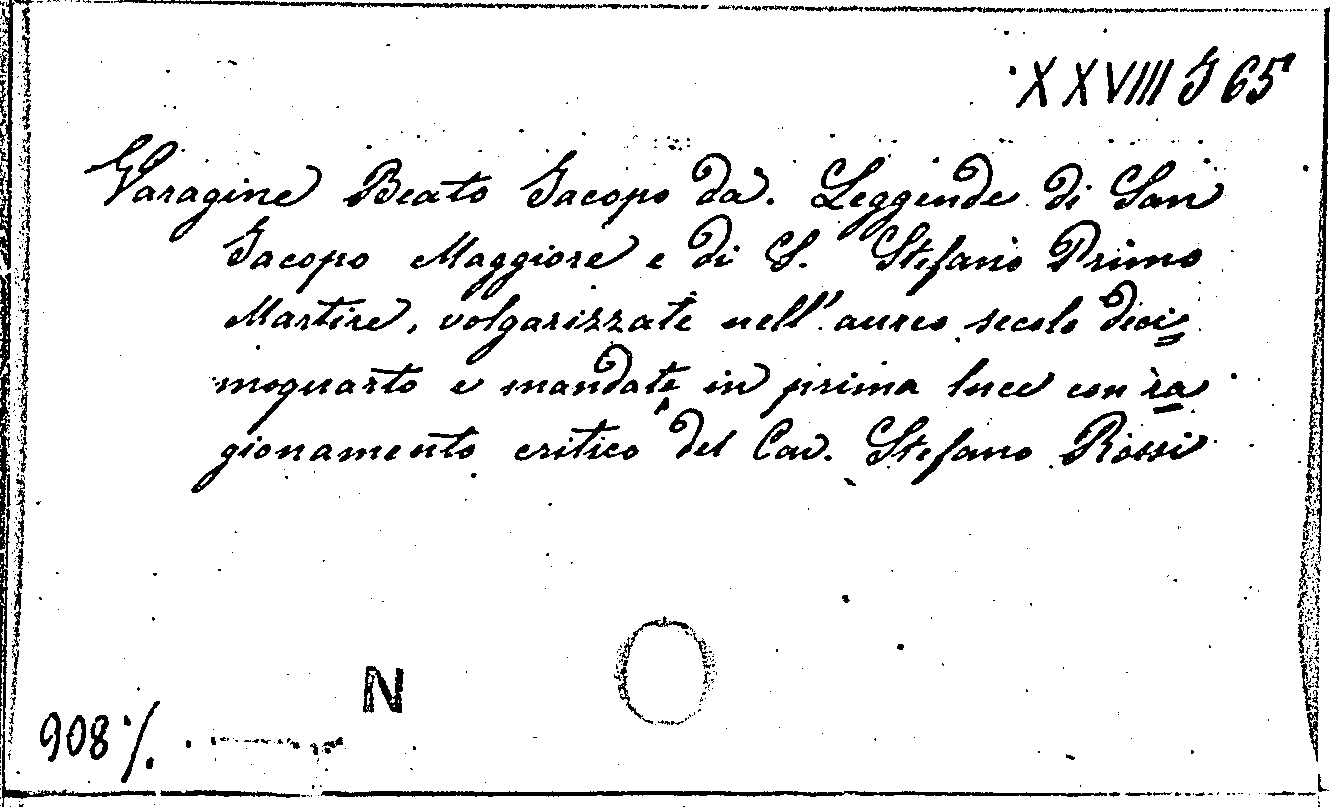 XXVIII J 65
Varagine Beato Jacopo da. Leggende di San
Jacopo Maggiore e di S. Stefano Primo
Martire, volgarizzate nell'aureo secolo deci=
moquarto e mandate in prima luce con ra=
gionamento critico del Cav. Stefano Rossi
N
908 /.